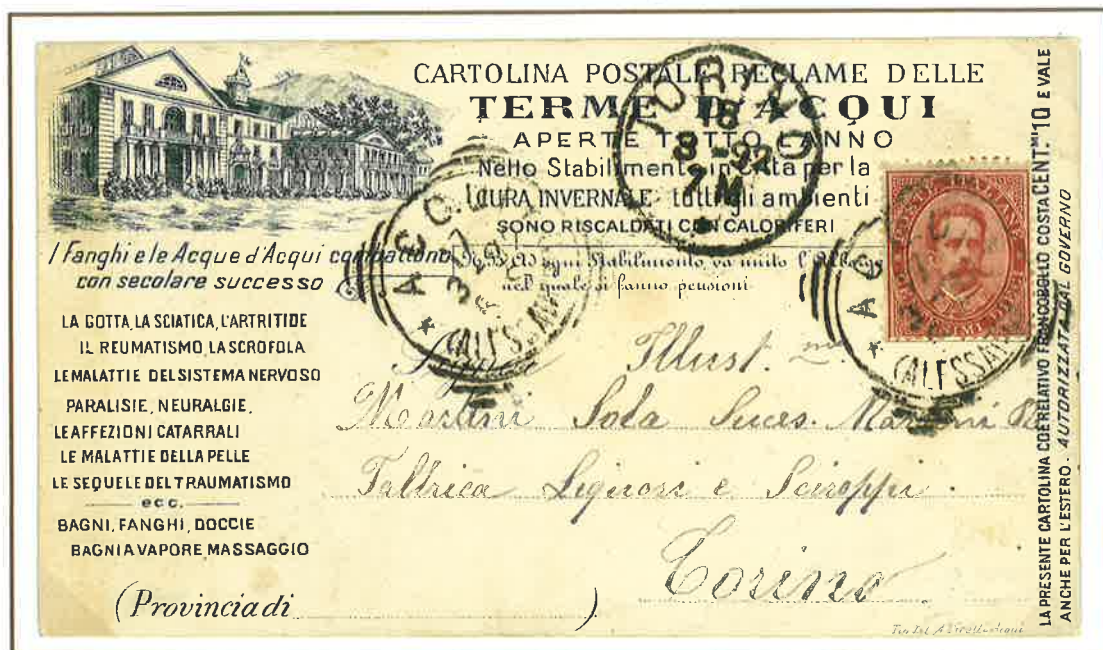 CARTOLINA POSTALE RECLAME DELLE
TERME D'ACQUI
APERTE TUTTO L'ANNO
Nello Stabilimento in Città per la
CURA INVERNALE tutti gli ambienti
SONO RISCALDATI CON CALORIFERI
N.B. Ad ogni Stabilimento va unito l'Albergo
nel quale si fanno pensioni
I Fanghi e le Acque d'Acqui combattono
con secolare successo
LA GOTTA, LA SCIATICA, L'ARTRITIDE
IL REUMATISMO, LA SCROFOLA
LE MALATTIE DEL SISTEMA NERVOSO
PARALISIE, NEURALGIE,
LE AFFEZIONI CATARRALI
LE MALATTIE DELLA PELLE
LE SEQUELE DEL TRAUMATISMO
ecc.
BAGNI, FANGHI, DOCCIE
BAGNI A VAPORE, MASSAGGIO
(Provincia di )
TORINO
8-92
7M
ACQUI
(ALESSAN
ACQUI
(ALESSAN
Illust.mi
Martini Sola Suces. Martini
Fabbrica Liquori e Sciroppi
Torino
LA PRESENTE CARTOLINA COL RELATIVO FRANCOBOLLO COSTA CENT.MI 10 E VALE
ANCHE PER L'ESTERO - AUTORIZZATA DAL GOVERNO